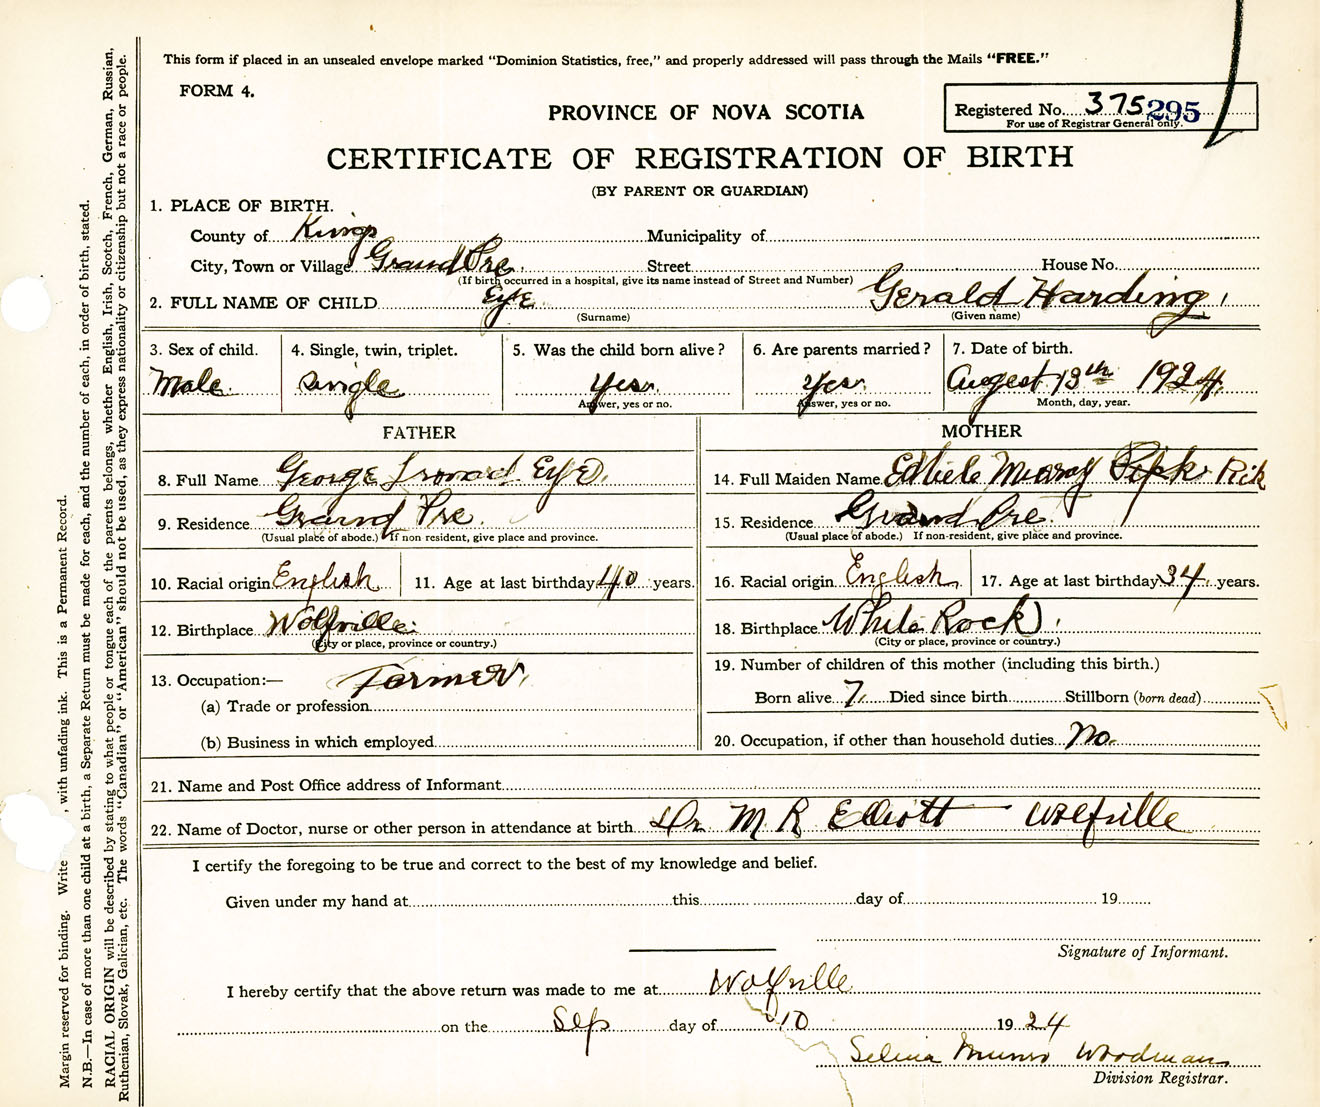 This form if placed in an unsealed envelope marked "Dominion Statistics, free," and properly addressed will pass through the Mails "FREE."
FORM 4.
PROVINCE OF NOVA SCOTIA
Registered No. 375 295
For use of Registrar General only.
CERTIFICATE OF REGISTRATION OF BIRTH
(BY PARENT OR GUARDIAN)
1. PLACE OF BIRTH.
County of Kings Municipality of
City, Town or Village Grand Pre. Street House No.
(If birth occurred in a hospital, give its name instead of Street and Number)
2. FULL NAME OF CHILD Eye Gerald Harding
(Surname) (Given name)
3. Sex of child. 4. Single, twin, triplet. 5. Was the child born alive? 6. Are parents married? 7. Date of birth.
Male. Single Yes. Yes. Augest 13th 1924
Answer, yes or no. Answer, yes or no. Month, day, year.
FATHER MOTHER
8. Full Name George Eye. 14. Full Maiden Name
9. Residence Grand Pre. 15. Residence Grand Pre.
(Usual place of abode.) If non resident, give place and province. (Usual place of abode.) If non-resident, give place and province.
10. Racial origin English 11. Age at last birthday 40 years. 16. Racial origin English 17. Age at last birthday 34 years.
12. Birthplace Wolfville. 18. Birthplace White Rock.
(City or place, province or country.) (City or place, province or country.)
13. Occupation:— Farmer. 19. Number of children of this mother (including this birth.)
(a) Trade or profession Born alive 7 Died since birth Stillborn (born dead)
(b) Business in which employed 20. Occupation, if other than household duties No.
21. Name and Post Office address of Informant
22. Name of Doctor, nurse or other person in attendance at birth Dr. M R Elliott Wolfville
I certify the foregoing to be true and correct to the best of my knowledge and belief.
Given under my hand at this day of 19
Signature of Informant.
I hereby certify that the above return was made to me at Wolfville
on the Sep day of 10 1924
Selina Munro Woodman
Division Registrar.
Margin reserved for binding. Write , with unfading ink. This is a Permanent Record.
N.B.—In case of more than one child at a birth, a Separate Return must be made for each, and the number of each, in order of birth, stated.
RACIAL ORIGIN will be described by stating to what people or tongue each of the parents belongs, whether English, Irish, Scotch, French, German, Russian,
Ruthenian, Slovak, Galician, etc. The words "Canadian" or "American" should not be used, as they express nationality or citizenship but not a race or people.